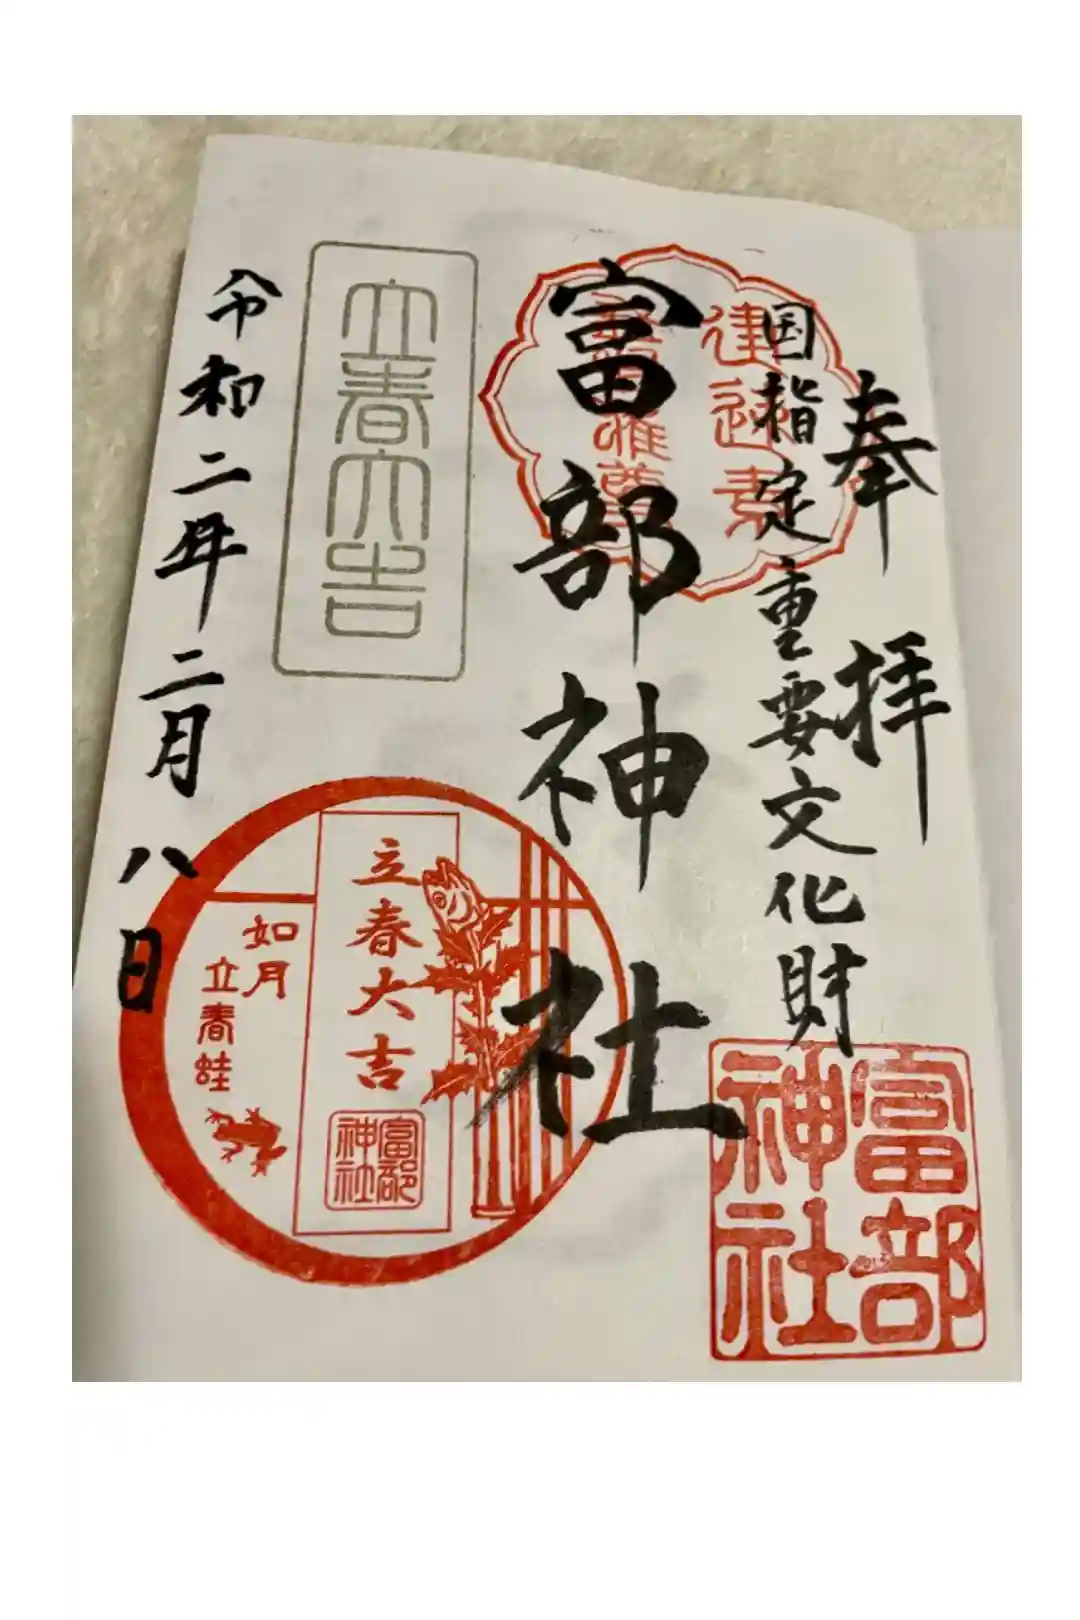 奉拝
国指定重要文化財
建速素
盞嗚尊
富部神社
富部
神社
立春大吉
令和二年二月八日
立春大吉
富部
神社
如月
立春蛙